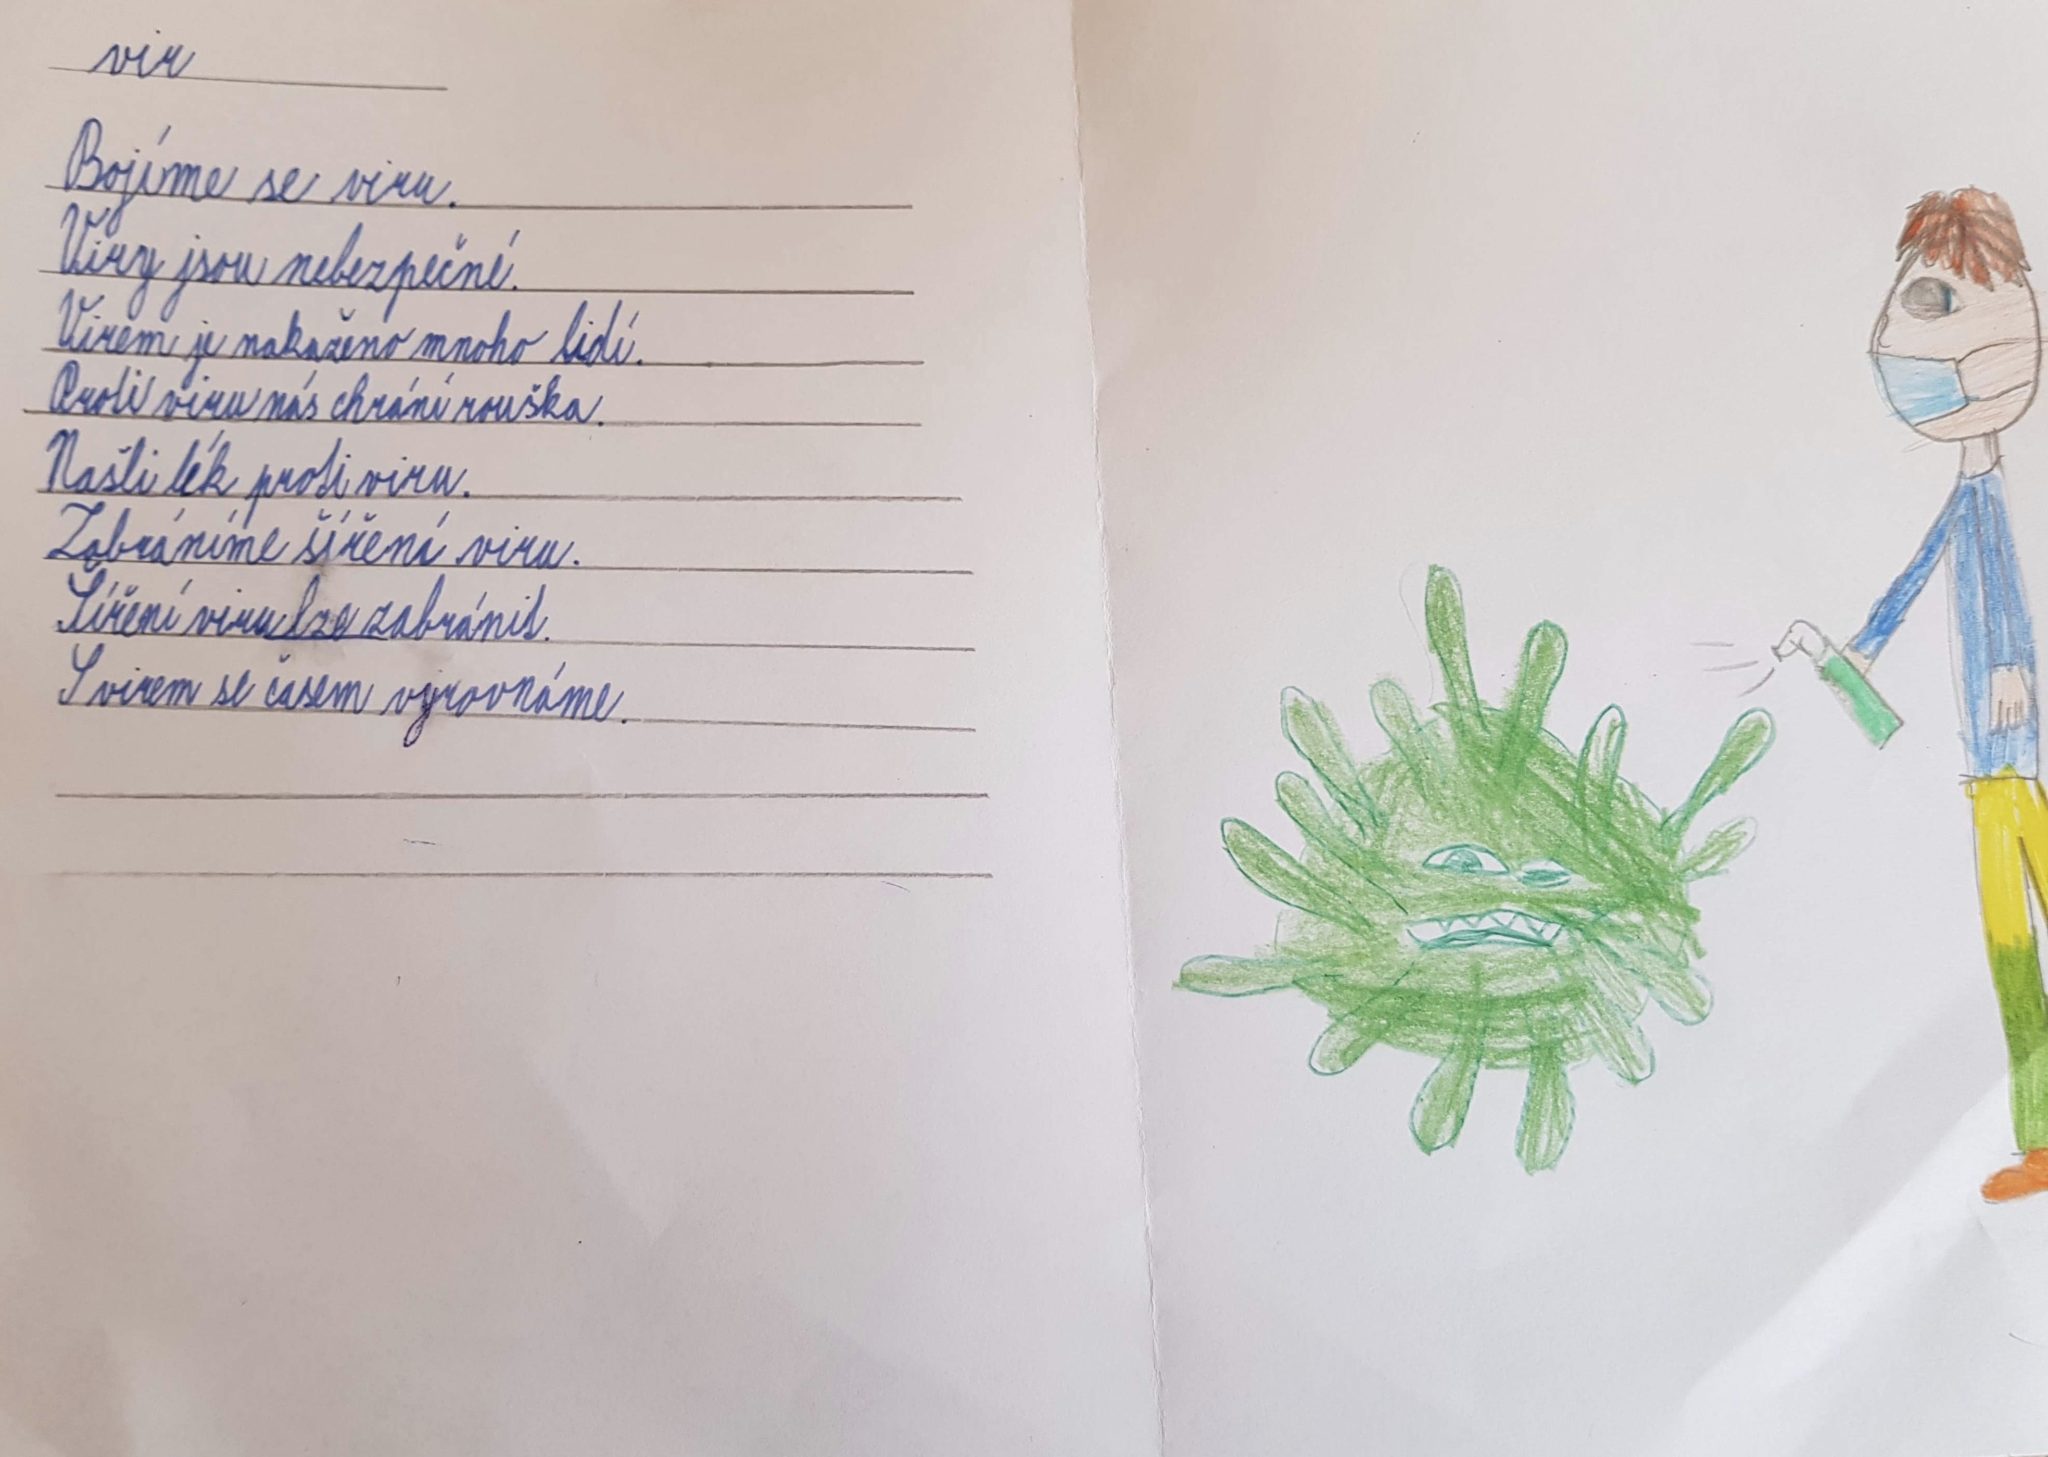 vir
Bojíme se viru.
Viry jsou nebezpečné.
Virem je nakaženo mnoho lidí.
Proti viru nás chrání rouška.
Našli lék proti viru.
Zabráníme šířená viru.
Šíření viru lze zabránit.
S virem se časem vyrovnáme.